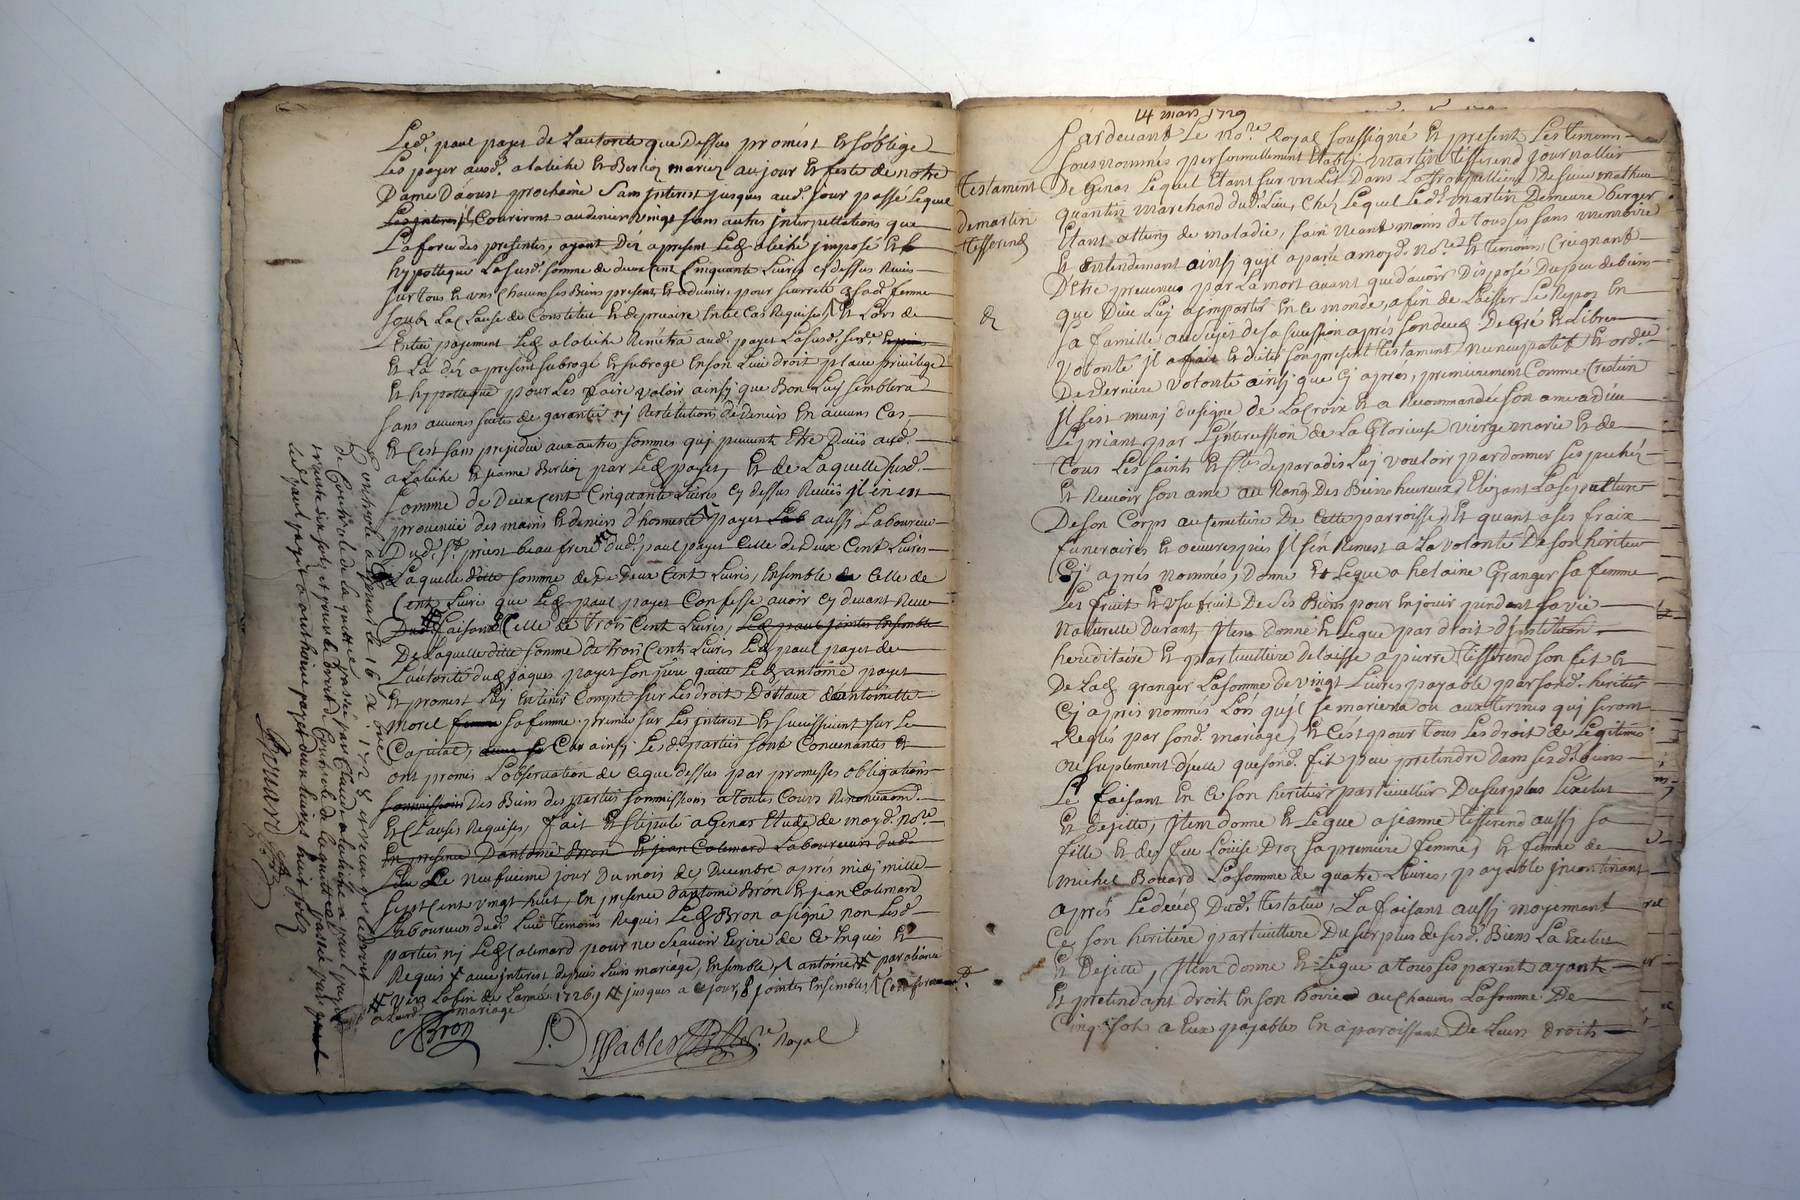 Led. paul payet de Lautorite que Dessus promest Et soblige
Les payer ausd. alatiche Et Berlioz mariez au jour Et feste de notre
Dame Daoust prochaine sans interest jusques aud. jour passé Lequel
Les interest Couriront au denier vingt sans autres interpellations que
La force des presentes, ayant Déz apresent Led. alatiche imposé Et
hypottequé La susd. somme de deux cent Cinquante Livres cy dessus
sur tous Et uns Chacuns ses Biens presents Et advenir pour seurretté a sad. femme
soubz La Clause de Constitut Et de precaire En tel Cas Requises Et Lors de
Entier payement Led. alatiche Remettra aud. payet La susd.
Et La déz apresent subrogé Et subroge En son Lieu droit place privilege
Et hypotteque pour Les faire valoir ainsy que Bon Luy semblera
sans aucunes suittes de garantie ny Restitution de deniers En aucuns Cas
Et C'est sans prejudice aux autres sommes quy peuvent Etre Deües aud.
alatiche Et jeanne Berlioz par Led. payet, Et de Laquelle susd.
somme de Deux Cent Cinquante Livres cy dessus il en est
provenüe des mains Et deniers d'honneste payet aussi Laboureur
Dud. St. priest beau frere dud. paul payet Celle de Deux Cent Livres
Laquelle ditte somme de Deux Cent Livres, Ensemble Celle de
Cent Livres que Led. paul payet Confesse avoir cy devant Receu
faisant Celle de Trois Cent Livres, Led. paul jointes Ensemble
De Laquelle ditte somme de Trois Cents Livres Led. paul payet de
L'autorité dud. jaques payet son pere quitte Led. antoine payet
Et promest Luy En tenir Compte sur Les droit Dottaux d'antoinette
morel femme sa femme, premier sur Les interest Et sur Le
Capital, Car ainsy Les d. parties sont Convenantes Et
ont promis L'observation de ce que dessus par promesses obligations
soumissions Des Biens des parties soumissions a toutes Cours
Et Clauses Requises, fait Et stipulé a Genas Etude de moyd. nore.
En presence D'antoine Bron Et jean Calemard Laboureurs dud.
Lieu Le neufvieme jour Du mois de Decembre apres midy mille
sept Cent vingt huit, En presence d'antoine Bron Et jean Calemard
Laboureurs dud. Lieu Temoins Requis Led. Bron a signé non Lesd.
parties ny Led. Calemard pour ne Sçavoir Ecrire de Ce Enquis Et
Requis avec interest depuis Leurs mariage, Ensemble, antoine
vers La fin de Lannée 1726 jusques a ce jour, jointes Ensembles,
mariage
Bron
Royal
Controllé a le 16 Xbre 1728
de Controlle de La quittance passée par Claude alatiche a paul payet
trente six sols et pour le droit de Controlle de La quittance passée par
Led. paul payet a anthoine payet deux livres huit sols
14 mars 1729
Testament
de martin
tisserend
Pardevant Le Nore. Royal soussigné Et present Les temoins
sous nommés personnellement Etably Martin tisserend journallier
De Genas Lequel Etant sur un Lit Dans De sieur mathieu
quantin marchand dud. Lieu, Chez Lequel Led. Martin Demeure Berger
Etant attein de maladie, sain neant moins de tous ses sans memoire
Et Entendement ainsy qu'il a paru a moyd. Nore. Et temoins, Craignant
D'Etre prevenus par La mort avant que d'avoir Disposé Du peu de biens
que Dieu Luy a imparti En ce monde, afin de Laisser Le Repos En
sa famille au sujet de sa succession apres son deces De Gré Et Libre
volonté il a fait Et dicté son present testament nuncupatif Et ord.
De Derniere volonté ainsy que cy apres, premierement Comme Crestien
il s'est muny du signe de La Croix Et a Recommandé son ame a dieu
Le priant par L'intercession de La Glorieuse vierge marie Et de
tous Les Saints Et stes. de paradis Luy vouloir pardonner ses pechéz
Et Recevoir son ame au Rang Des Bienheureux, Elizant La sepulture
De son Corps au semetiere De Cette parroisse, Et quant a ses fraix
funeraires Et oeuvres pies il s'en Remest a La volonté De son heritier
Cy apres nommés, Donne Et Legue a helaine Granger sa femme
Les fruit Et usufruit De ses Biens pour En jouir pendent sa vie
naturelle Durant, Item donne Et Legue par droit d'institution
hereditaire Et particulliere delaisse a pierre tisserend son fit Et
De Lad. granger La somme de vingt Livres payable par sond. heritier
Cy apres nommés Lors qu'il se mariera ou aux termes quy seront
Reglés par sond. mariage, Et C'est pour tous Les droit de Legitimes
ou suplement d'jcelle que sond. fit peu pretendre dans sesd. biens
Le faisant En Ce son heritier particullier Du surplus L'exclut
Et dejitte, Item donne Et Legue a jeanne tisserend aussy sa
fille Et de feu Louise Droz sa premiere femme, Et femme de
Michel Bouard La somme de quatre Livres, payable incontinant
apres Le deces Dud. testateur, La faisant aussy moyennant
Ce son heritiere particulliere Du surplus de sesd. Biens La Exclut
Et Dejitte, Item donne Et Legue a tous ses parent ayants
Et pretendant droit En son hoirie a un Chacuns La somme De
Cinq sols a Eux payables En aparoissant De Leurs droits